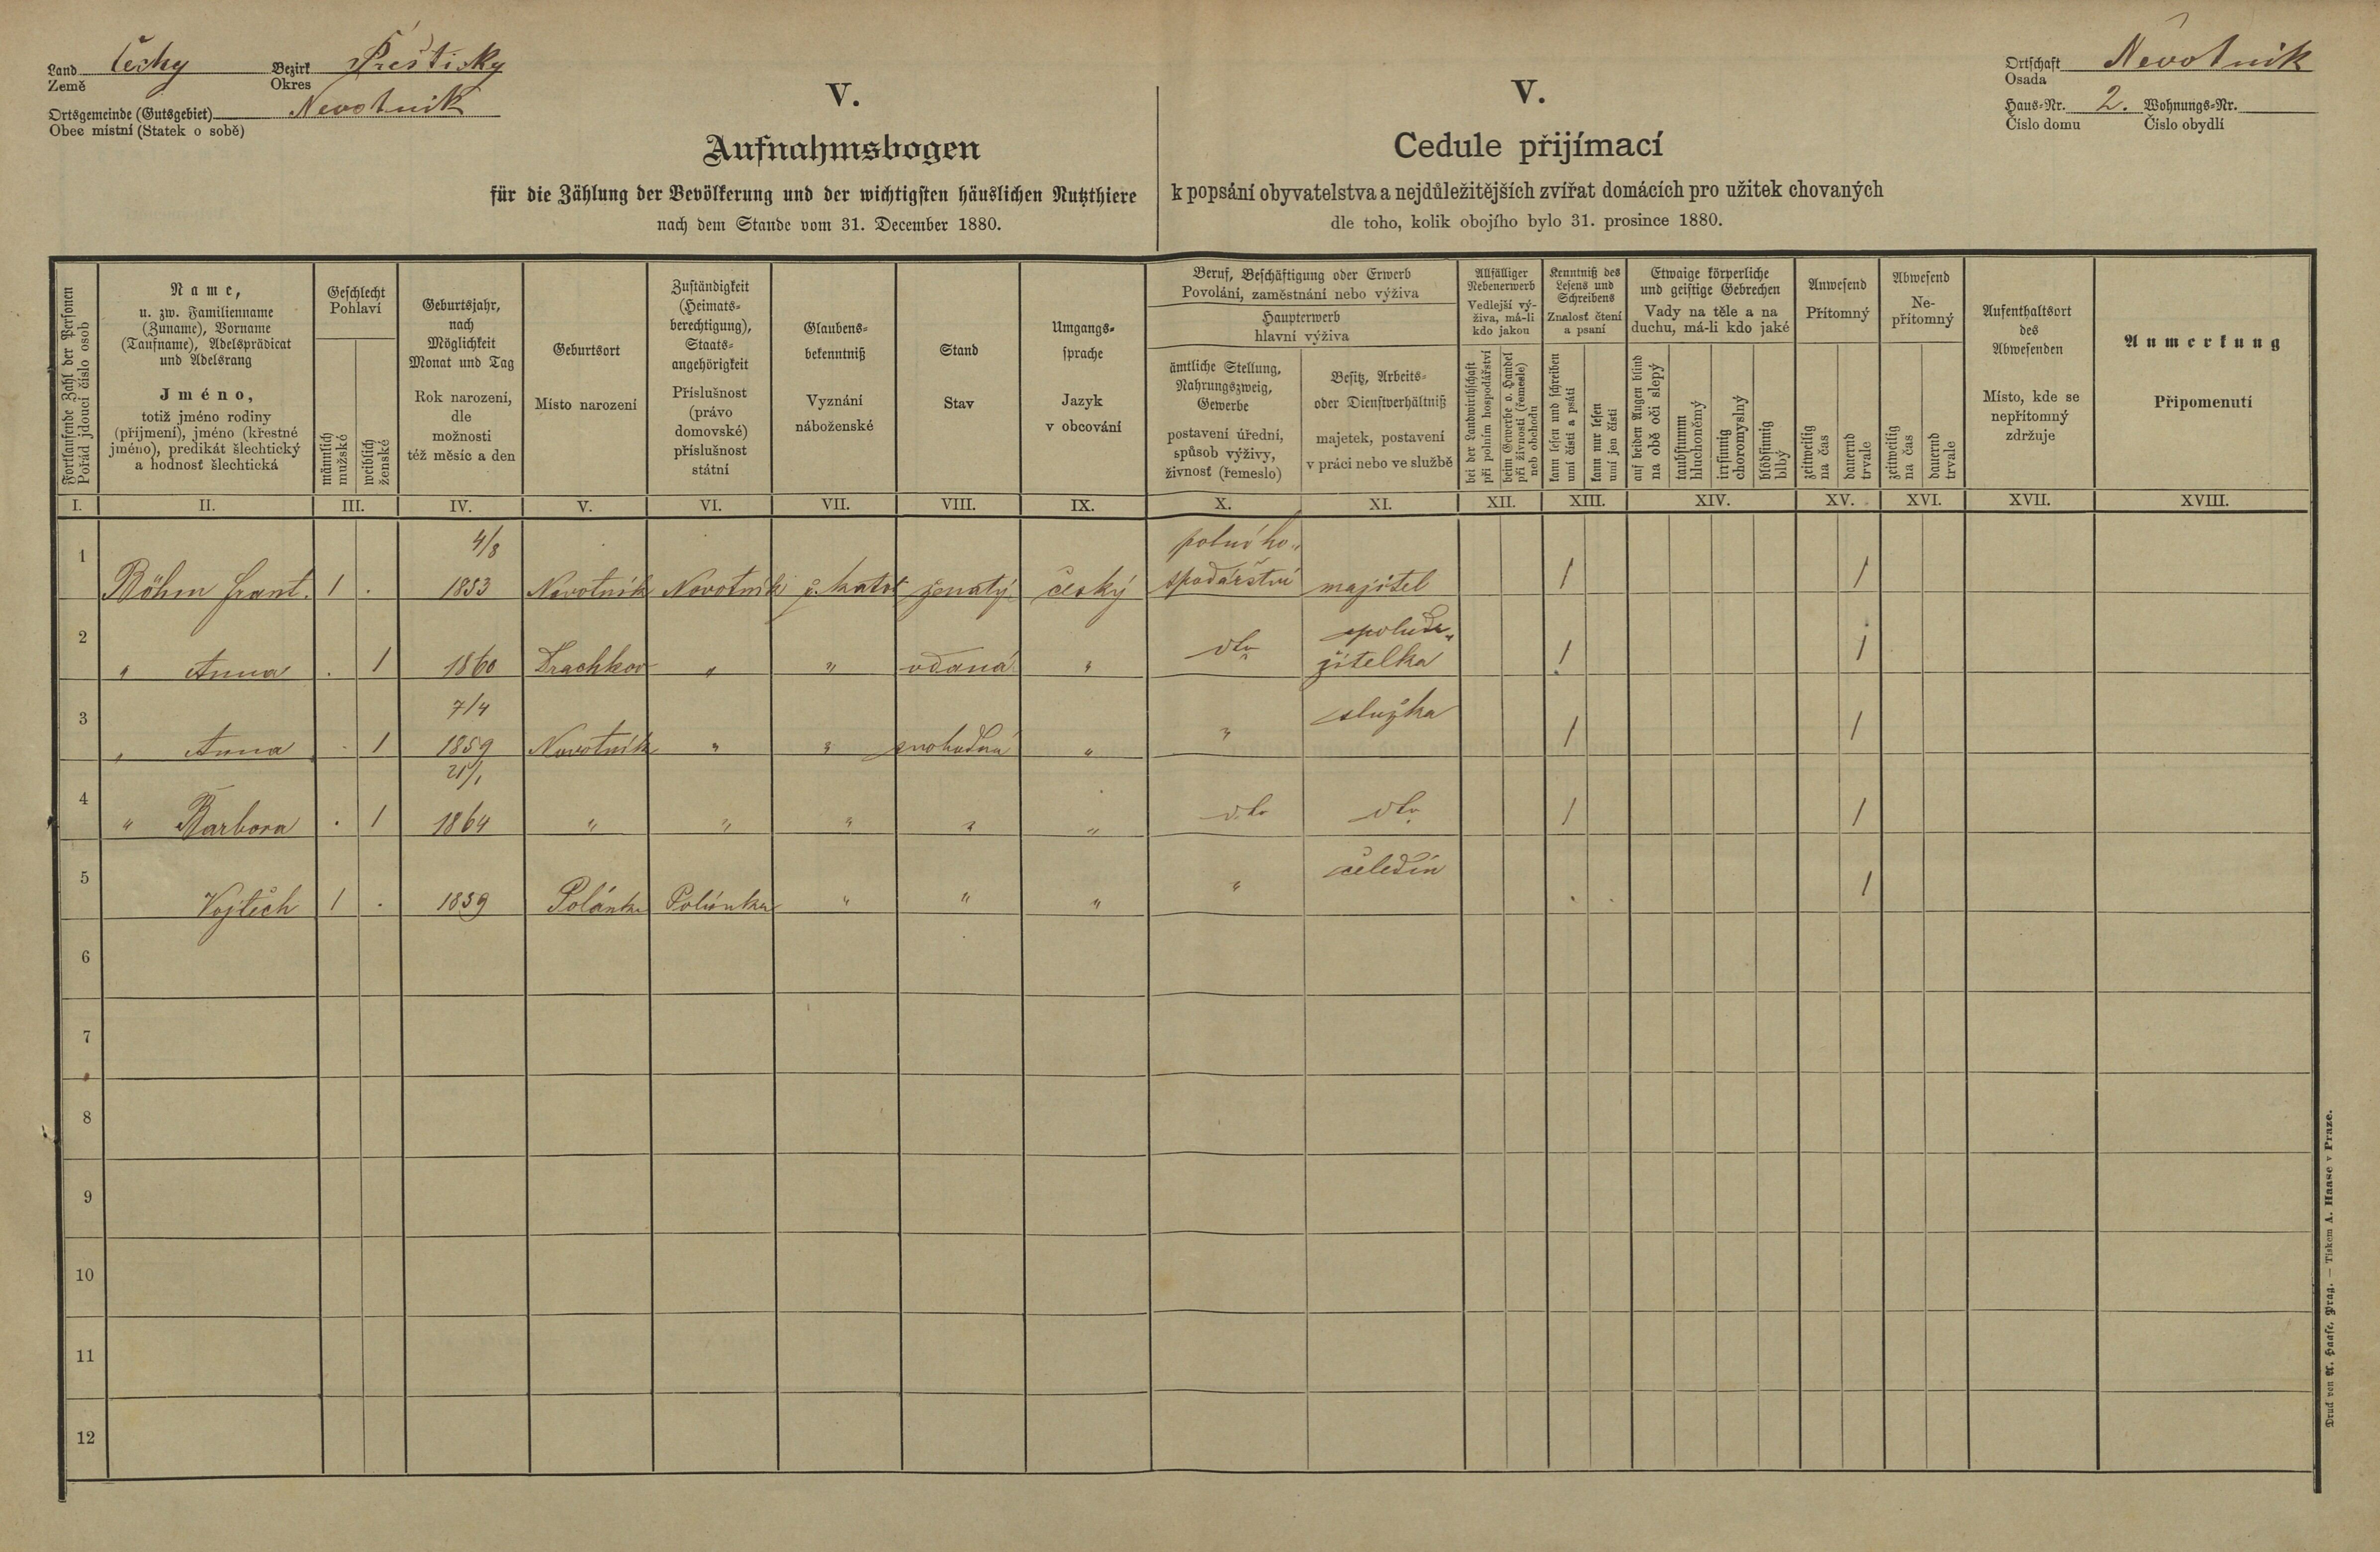 Land Čechy Bezirk Přeštický
Země Okres
Ortsgemeinde (Gutsgebiet) Nevotnik
Obec místní (Statek o sobě)
V.
Aufnahmsbogen
für die Zählung der Bevölkerung und der wichtigsten häuslichen Nutzthiere
nach dem Stande vom 31. December 1880.
V.
Cedule přijímací
k popsání obyvatelstva a nejdůležitějších zvířat domácích pro užitek chovaných
dle toho, kolik obojího bylo 31. prosince 1880.
Ortschaft Nevotnik
Osada
Haus-Nr. 2. Wohnungs-Nr.
Číslo domu Číslo obydlí
Fortlaufende Zahl der Personen
Pořád jdoucí číslo osob
Name,
u. zw. Familienname
(Zuname), Vorname
(Taufname), Adelsprädicat
und Adelsrang
Jméno,
totiž jméno rodiny
(příjmení), jméno (křestné
jméno), predikát šlechtický
a hodnosť šlechtická
Geschlecht
Pohlaví
männlich
mužské
weiblich
ženské
Geburtsjahr,
nach
Möglichkeit
Monat und Tag
Rok narození,
dle
možnosti
též měsíc a den
Geburtsort
Místo narození
Zuständigkeit
(Heimats-
berechtigung),
Staats-
angehörigkeit
Příslušnost
(právo
domovské)
příslušnost
státní
Glaubens-
bekenntniß
Vyznání
náboženské
Stand
Stav
Umgangs-
sprache
Jazyk
v obcování
Beruf, Beschäftigung oder Erwerb
Povolání, zaměstnání nebo výživa
Haupterwerb
hlavní výživa
ämtliche Stellung,
Nahrungszweig,
Gewerbe
postavení úřední,
spůsob výživy,
živnosť (řemeslo)
Besitz, Arbeits-
oder Dienstverhältniß
majetek, postavení
v práci nebo ve službě
Allfälliger
Nebenerwerb
Vedlejší vý-
živa, má-li
kdo jakou
bei der Landwirthschaft
při polním hospodářství
beim Gewerbe o. Handel
při živnosti (řemesle)
neb obchodu
Kenntniß des
Lesens und
Schreibens
Znalosť čtení
a psaní
kann lesen und schreiben
umí čísti a psáti
kann nur lesen
umí jen čísti
Etwaige körperliche
und geistige Gebrechen
Vady na těle a na
duchu, má-li kdo jaké
auf beiden Augen blind
na obě oči slepý
taubstumm
hluchoněmý
irrsinnig
choromyslný
blödsinnig
blbý
Anwesend
Přítomný
zeitweilig
na čas
dauernd
trvale
Abwesend
Ne-
přítomný
zeitweilig
na čas
dauernd
trvale
Aufenthaltsort
des
Abwesenden
Místo, kde se
nepřítomný
zdržuje
Anmerkung
Připomenutí
I. II. III. IV. V. VI. VII. VIII. IX. X. XI. XII. XIII. XIV. XV. XVI. XVII. XVIII.
4/8 polního„
1 Böhm Frant. 1 . 1853 Nevotník Nevotník ř. kato. ženatý český spodářství majitel 1 1
2 „ Anna . 1 1860 Drachkov „ „ vdaná „ dto spoludr„
žitelka 1 1
7/4
3 „ Anna . 1 1859 Nevotník „ „ svobodná „ „ služka 1 1
21/1
4 „ Barbora . 1 1864 „ „ „ „ „ dto dto 1 1
5 Vojtěch 1 . 1859 Polánka Polánka „ „ „ „ čeledín . . 1
6
7
8
9
10
11
12
Druck von A. Haase, Prag. — Tiskem A. Haase v Praze.